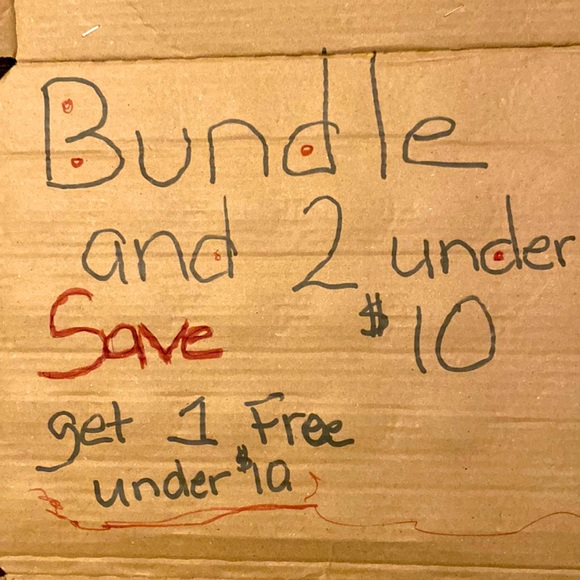 Bundle
and 2 under
Save $10
get 1 Free
under $10